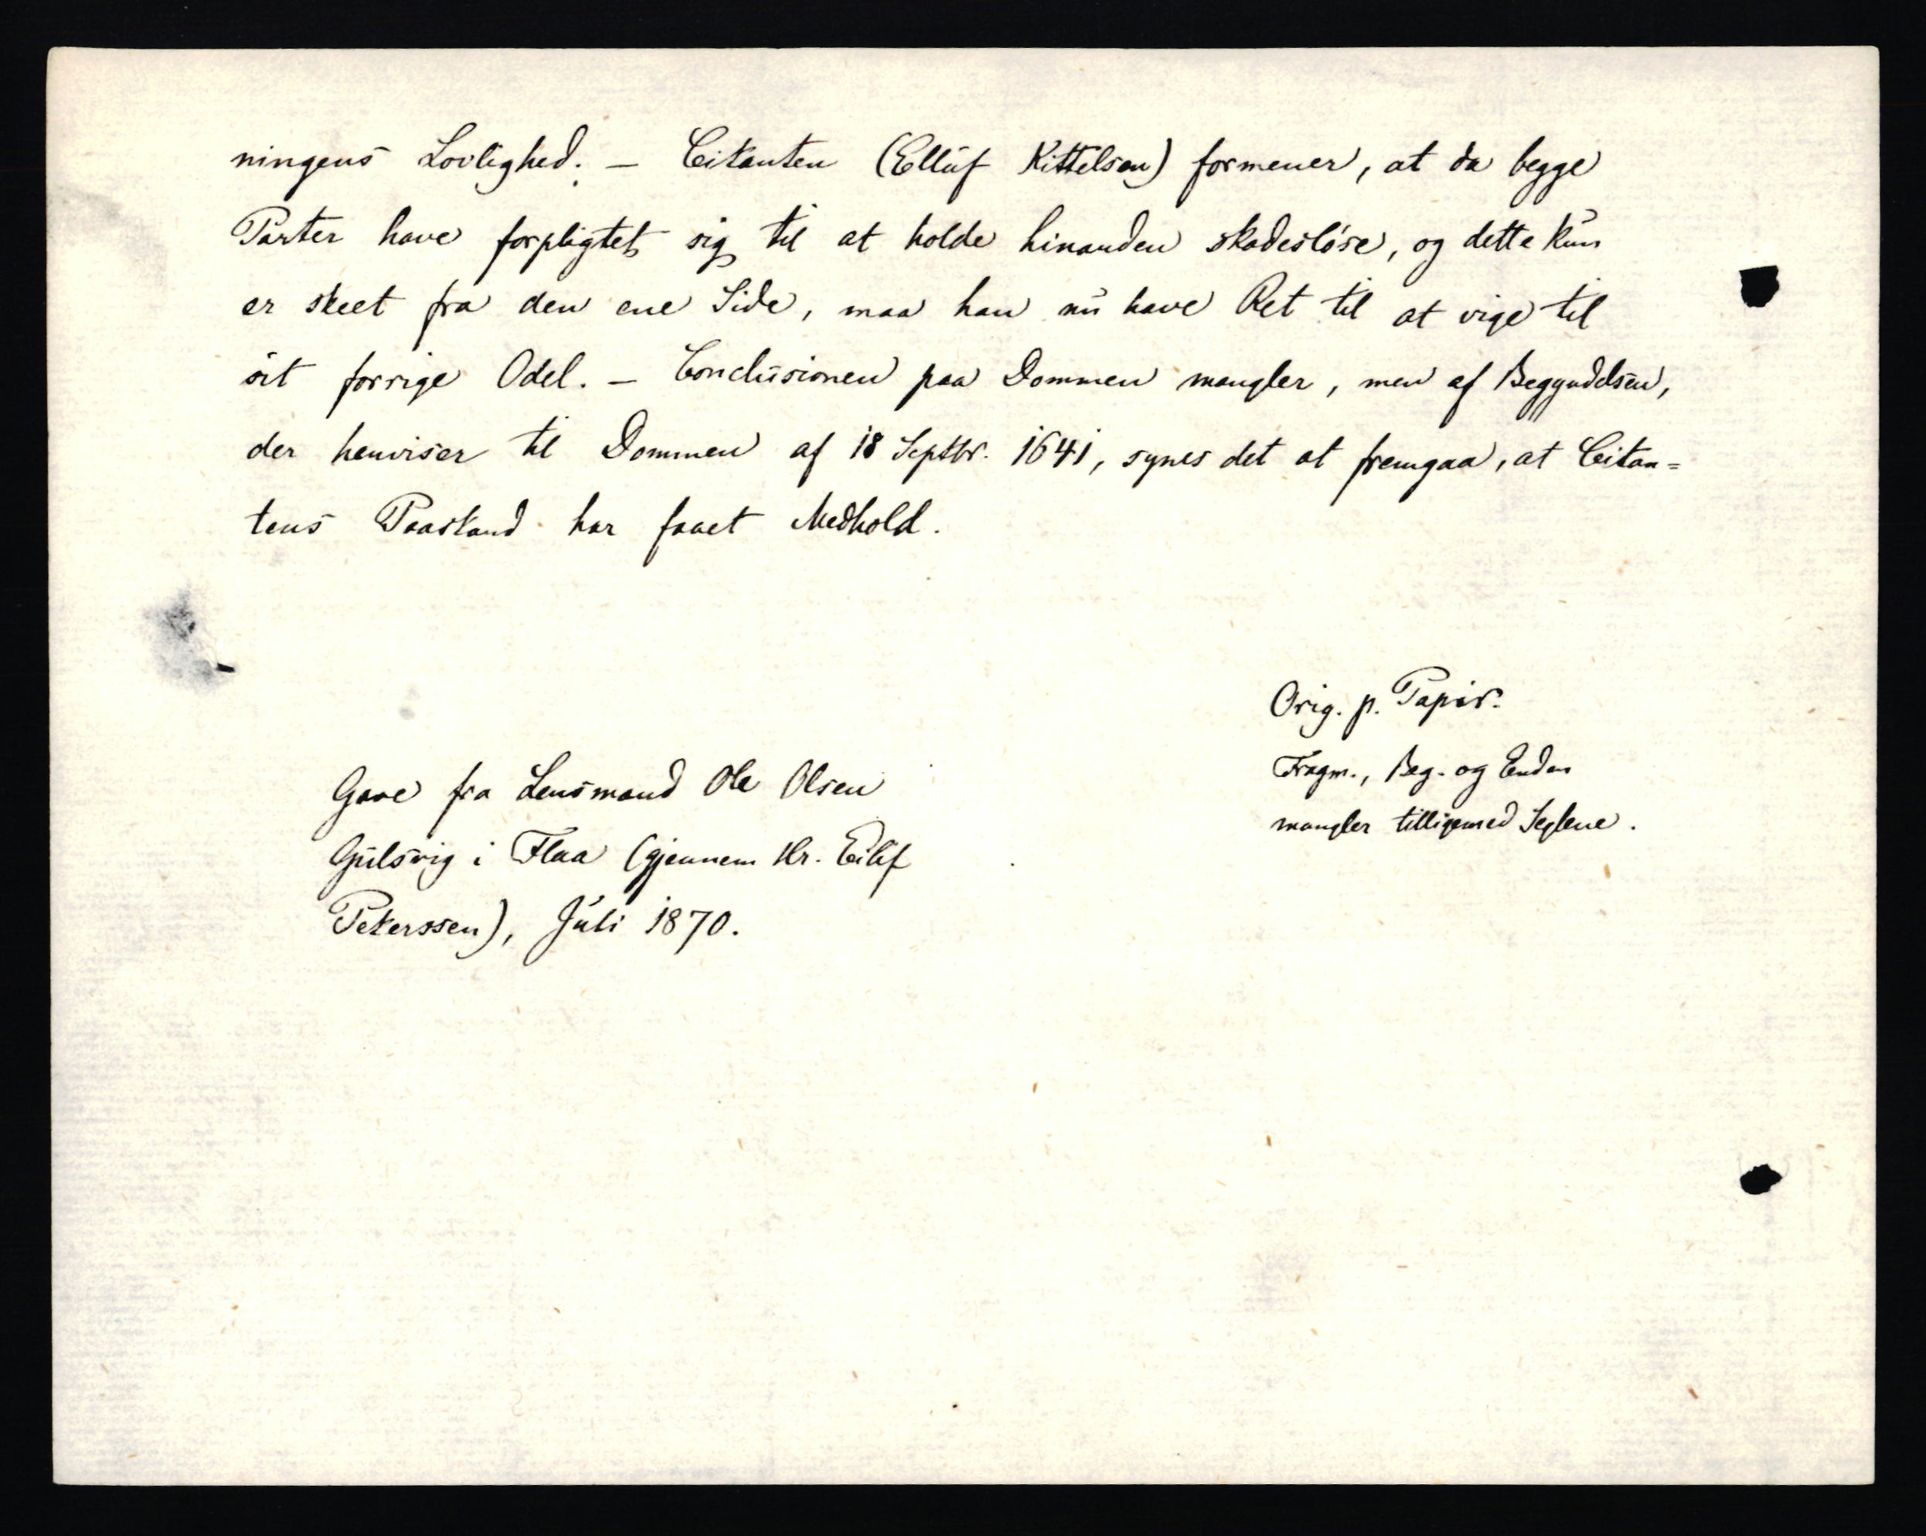 ningens Lovlighed. – Citanten (Elluf Kittelsen) formener, at da begge
Parter have forpligtet sig til at holde hinanden skadesløse, og dette kun
er skeet fra den ene Side, maa han nu have Ret til at vige til
sit forrige Odel. – Conclusionen paa Dommen mangler, men af Begyndelsen,
der henviser til Dommen af 18 Septbr. 1641, synes det at fremgaa, at Citan=
tens Paastand har faaet Medhold.
Orig. p. Papir.
Fragm., Beg. og Enden
mangler tilligemed Seglene.
Gave fra Lensmand Ole Olsen
Gulsvig i Flaa (gjennem Hr. Eilif
Peterssen), Juli 1870.